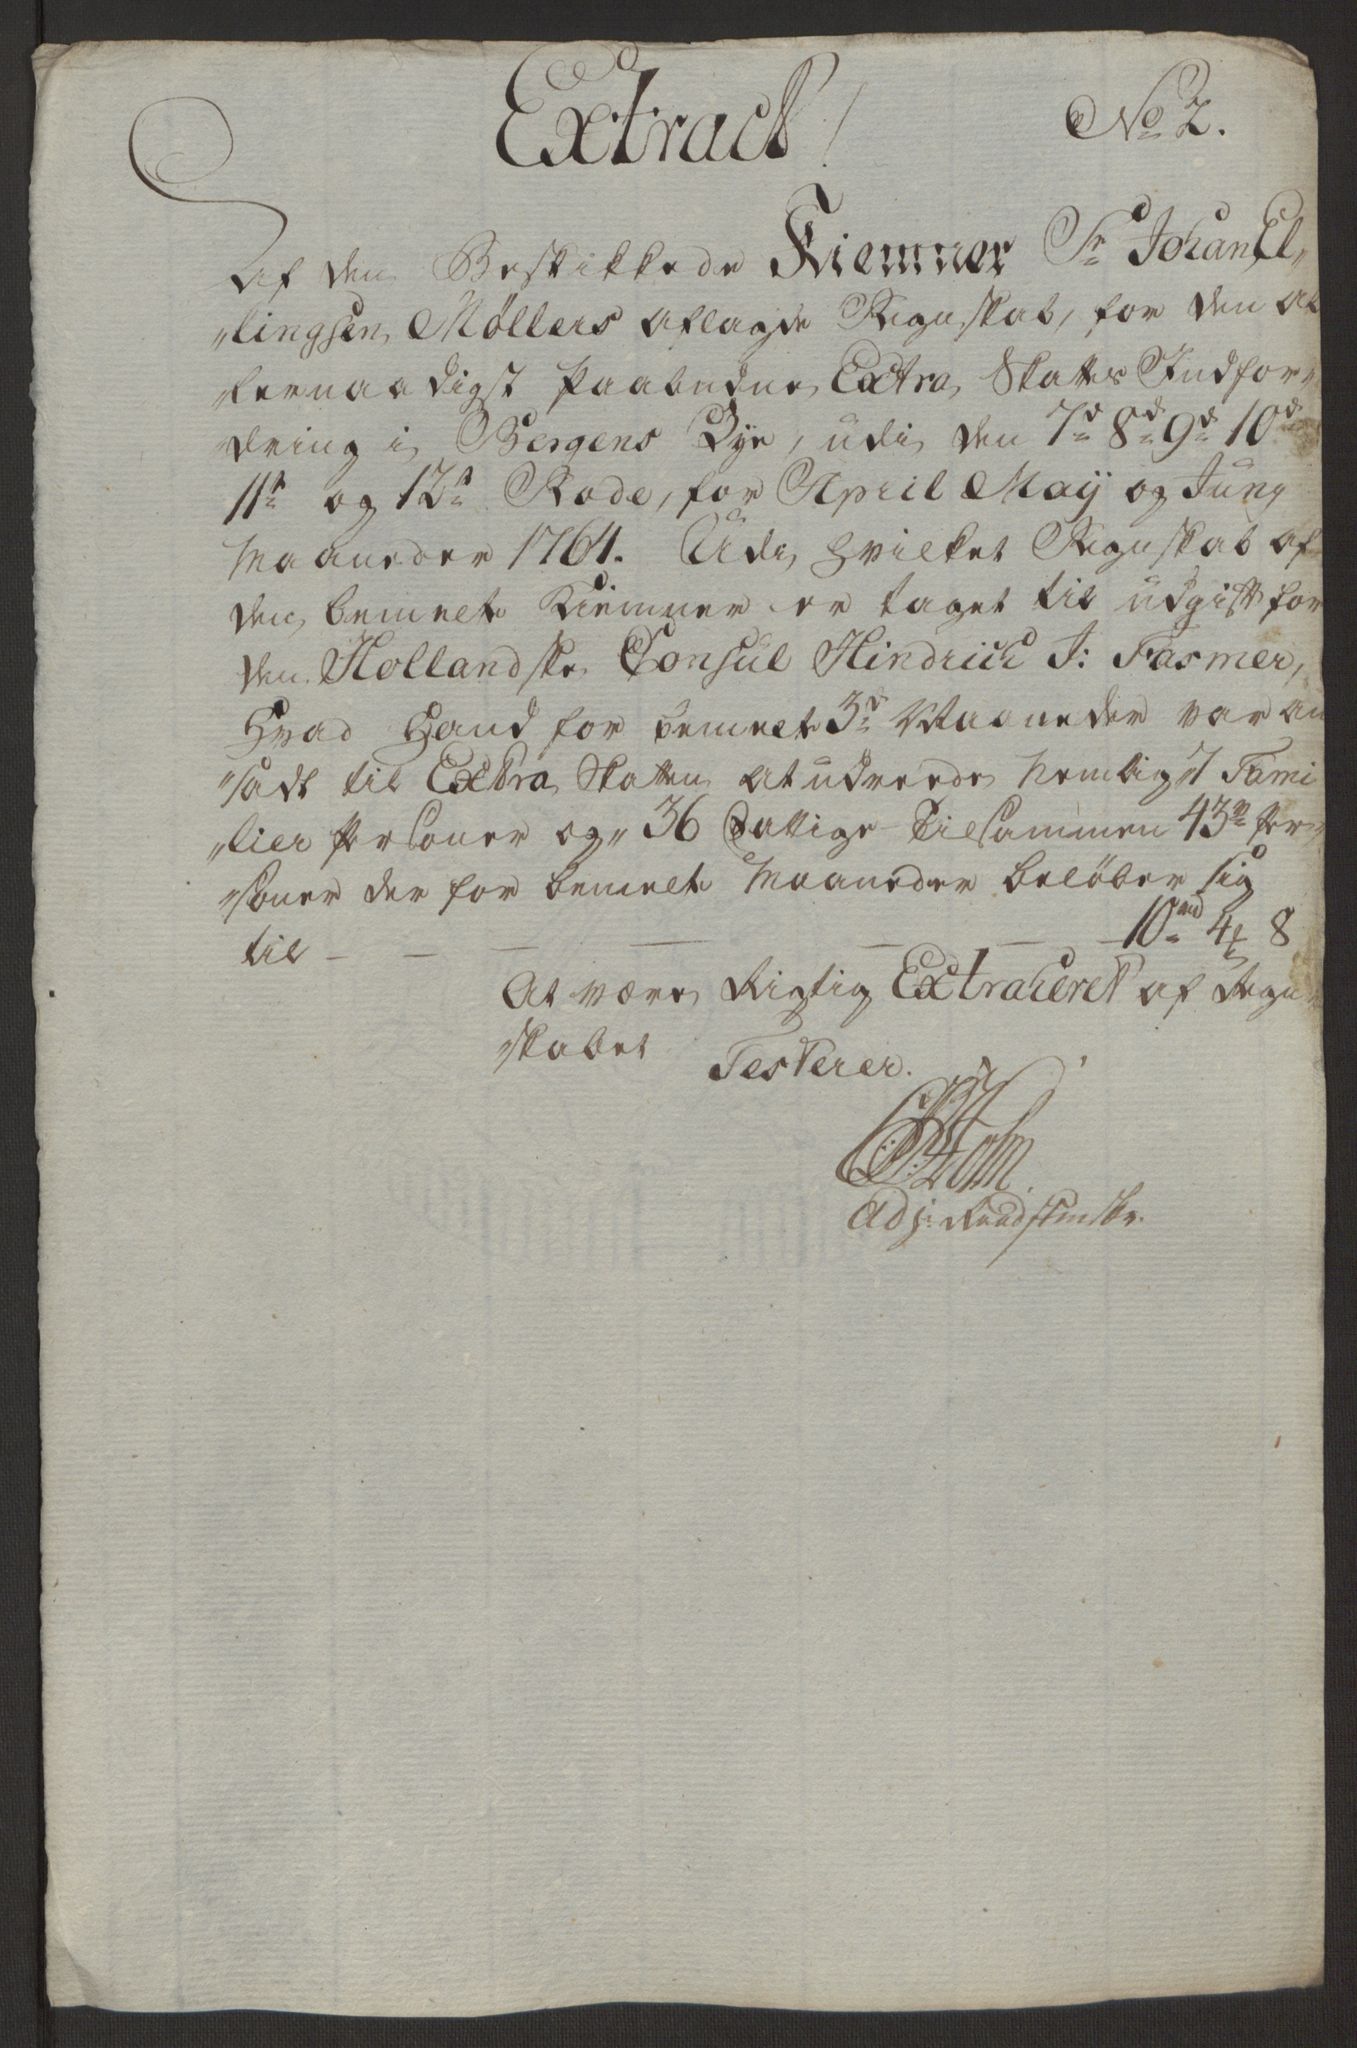 Extract!
No 2.
Af den Beskikkede Kiemner Sr Johan El„
„lingsen Møllers aflagde Regnskab, for den al
lernaadigst Paabudne Extra Skattes Indfor„
dring i Bergens Bye, udi den 7de 8de 9de 10de
11te og 12te Rode, for April Maÿ og Juny
Maaneder 1764. Udi hvilket Regnskab af
den bemelte Kiemner er taget til udgift for
den Hollandske Consul Hindrich J: Fasmer,
Hvad Hand for bemelte 3de Maaneder var an
„sadt til Extra Skatten at udreede, nemlig 7 Fami
„lier Persouner og 36 Fattige Tilsammen 43 Per„
„soner der for bemelte Maaneder beløber sig
til – – – – – – 10rd 4 8
At være Rigtig Extraheret af Regn„
„skabet
Testerer.
Holm
Adj: Raadstueskr.